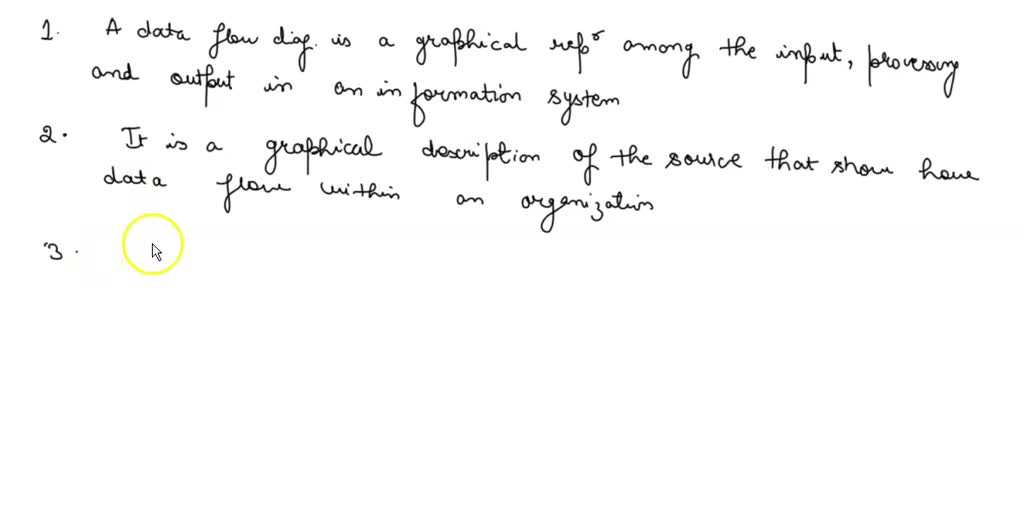 1. A data flow diag. is a graphical repr among the input, processing
and output in an information system
2. It is a graphical description of the source that show how
data flow within an organization
3.